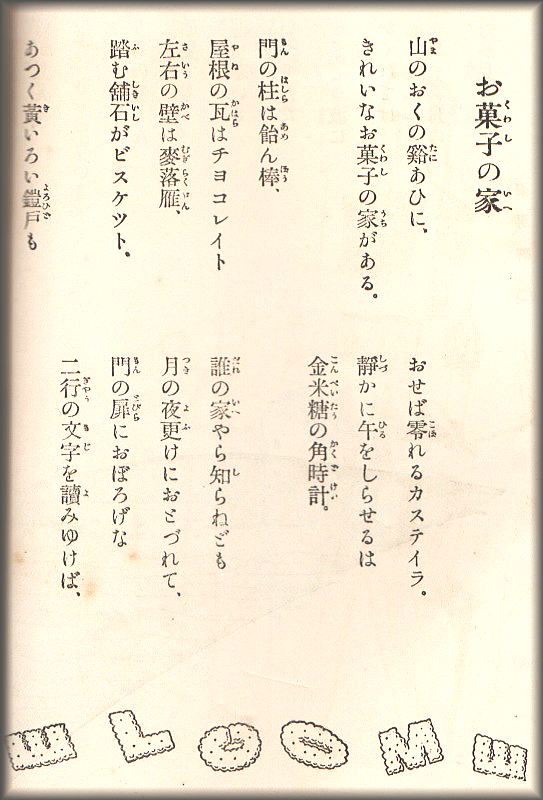 お菓子の家
山のおくの谿あひに、
きれいなお菓子の家がある。
門の柱は飴ん棒、
屋根の瓦はチヨコレイト
左右の壁は麥落雁、
踏む舖石がビスケツト。
あつく黃いろい鎧戸も
おせば零れるカステイラ。
靜かに午をしらせるは
金米糖の角時計。
誰の家やら知らねども
月の夜更けにおとづれて、
門の扉におぼろげな
二行の文字を讀みゆけば、
ELCOME